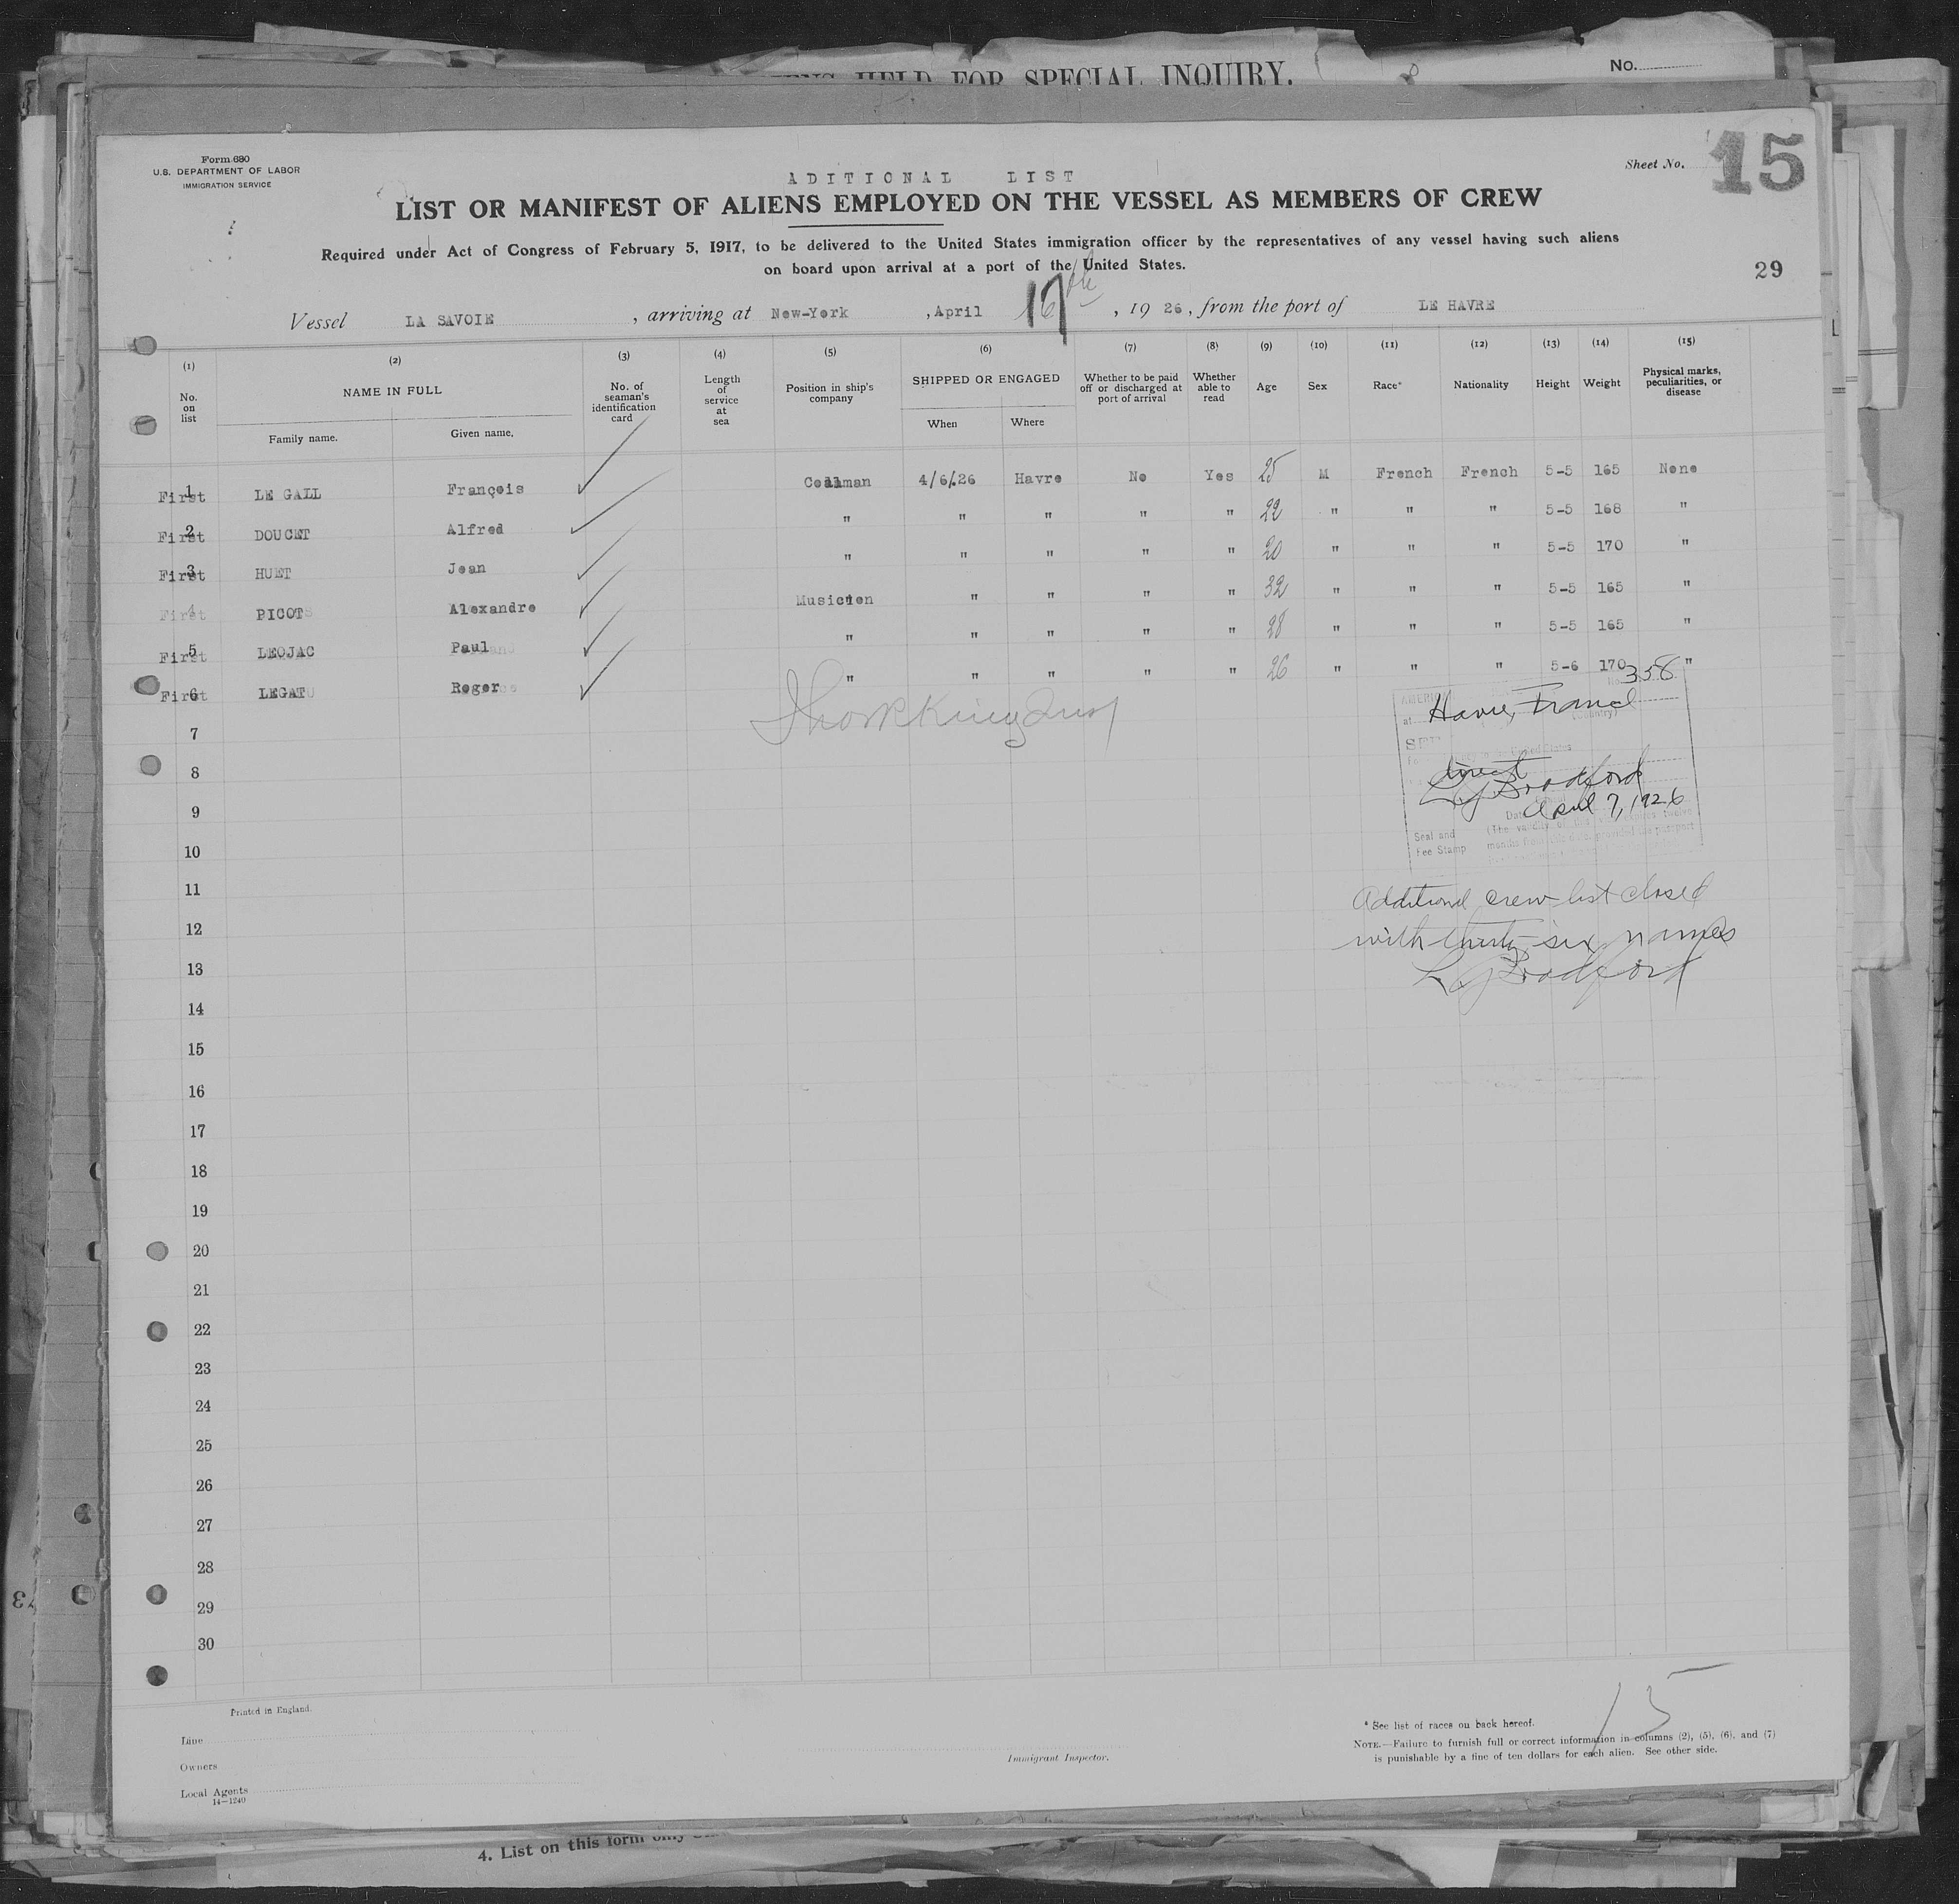 HELD FOR SPECIAL INQUIRY.
No.
Form 680
U.S. DEPARTMENT OF LABOR
IMMIGRATION SERVICE
Sheet No. 15
ADITIONAL LIST
LIST OR MANIFEST OF ALIENS EMPLOYED ON THE VESSEL AS MEMBERS OF CREW
Required under Act of Congress of February 5, 1917, to be delivered to the United States immigration officer by the representatives of any vessel having such aliens
on board upon arrival at a port of the United States.
29
Vessel LA SAVOIE , arriving at New-York , April 17th , 19 26 , from the port of LE HAVRE
(1) (2) (3) (4) (5) (6) (7) (8) (9) (10) (11) (12) (13) (14) (15)
No. on list
NAME IN FULL
Family name. Given name.
No. of seaman's identification card
Length of service at sea
Position in ship's company
SHIPPED OR ENGAGED
When Where
Whether to be paid off or discharged at port of arrival
Whether able to read
Age
Sex
Race*
Nationality
Height
Weight
Physical marks, peculiarities, or disease
1 First LE GALL François Coalman 4/6/26 Havre No Yes 25 M French French 5-5 165 None
2 First DOUCET Alfred " " " " " 22 " " " 5-5 168 "
3 First HUET Jean " " " " " 20 " " " 5-5 170 "
4 First PICOT Alexandre Musicien " " " " 32 " " " 5-5 165 "
5 First LEOJAC Paul " " " " " 28 " " " 5-5 165 "
6 First LEGAT Roger " " " " " 26 " " " 5-6 170 "
No. 358
AMERICAN
at Havre, France
(Country)
direct
L G Bradford
Date April 7, 1926
Seal and
Fee Stamp
Additional crew list closed
with thirty-six names
L G Bradford
7
8
9
10
11
12
13
14
15
16
17
18
19
20
21
22
23
24
25
26
27
28
29
30
Printed in England.
Line
Owners
Local Agents
14—1240
Immigrant Inspector.
15
* See list of races on back hereof.
NOTE.—Failure to furnish full or correct information in columns (2), (5), (6), and (7)
is punishable by a fine of ten dollars for each alien. See other side.
4. List on this form only